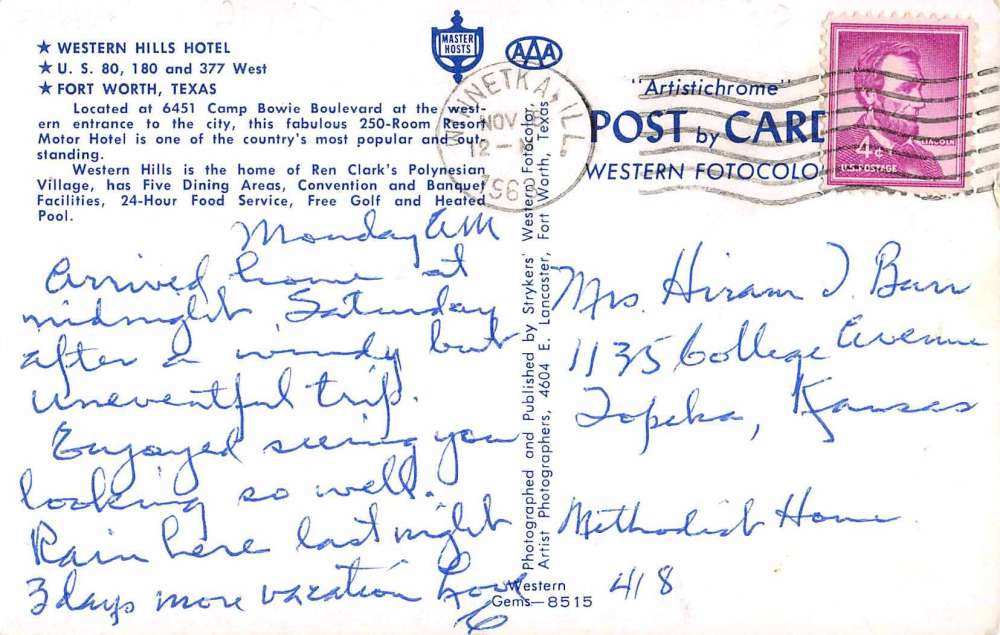 ★ WESTERN HILLS HOTEL
★ U. S. 80, 180 and 377 West
★ FORT WORTH, TEXAS
Located at 6451 Camp Bowie Boulevard at the west-
ern entrance to the city, this fabulous 250-Room Resort
Motor Hotel is one of the country's most popular and out-
standing.
Western Hills is the home of Ren Clark's Polynesian
Village, has Five Dining Areas, Convention and Banquet
Facilities, 24-Hour Food Service, Free Golf and Heated
Pool.
MASTER
HOSTS
AAA
WINNETKA, ILL.
NOV
12
"Artistichrome"
POST by CARD
WESTERN FOTOCOLO
LINCOLN
4¢
U.S. POSTAGE
Monday AM
Arrived home at
midnight Saturday
after a windy but
uneventful trip.
Enjoyed seeing you
looking so well.
Rain here last night
3 days more vacation
Photographed and Published by Strykers' Western Fotocolor,
Artist Photographers, 4604 E. Lancaster, Fort Worth, Texas
Mrs. Hiram J. Burr
1135 College Avenue
Topeka, Kansas
Methodist Home
418
Western
Gems—8515